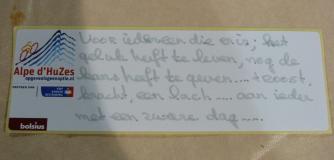 Voor iedereen die er is; het
geluk heeft te leven, nog de
kans heeft te geven.... troost,
kracht, een lach .... aan ieder
met een zware dag .....
Alpe d'HuZes
opgevenisgeenoptie.nl
bolsius